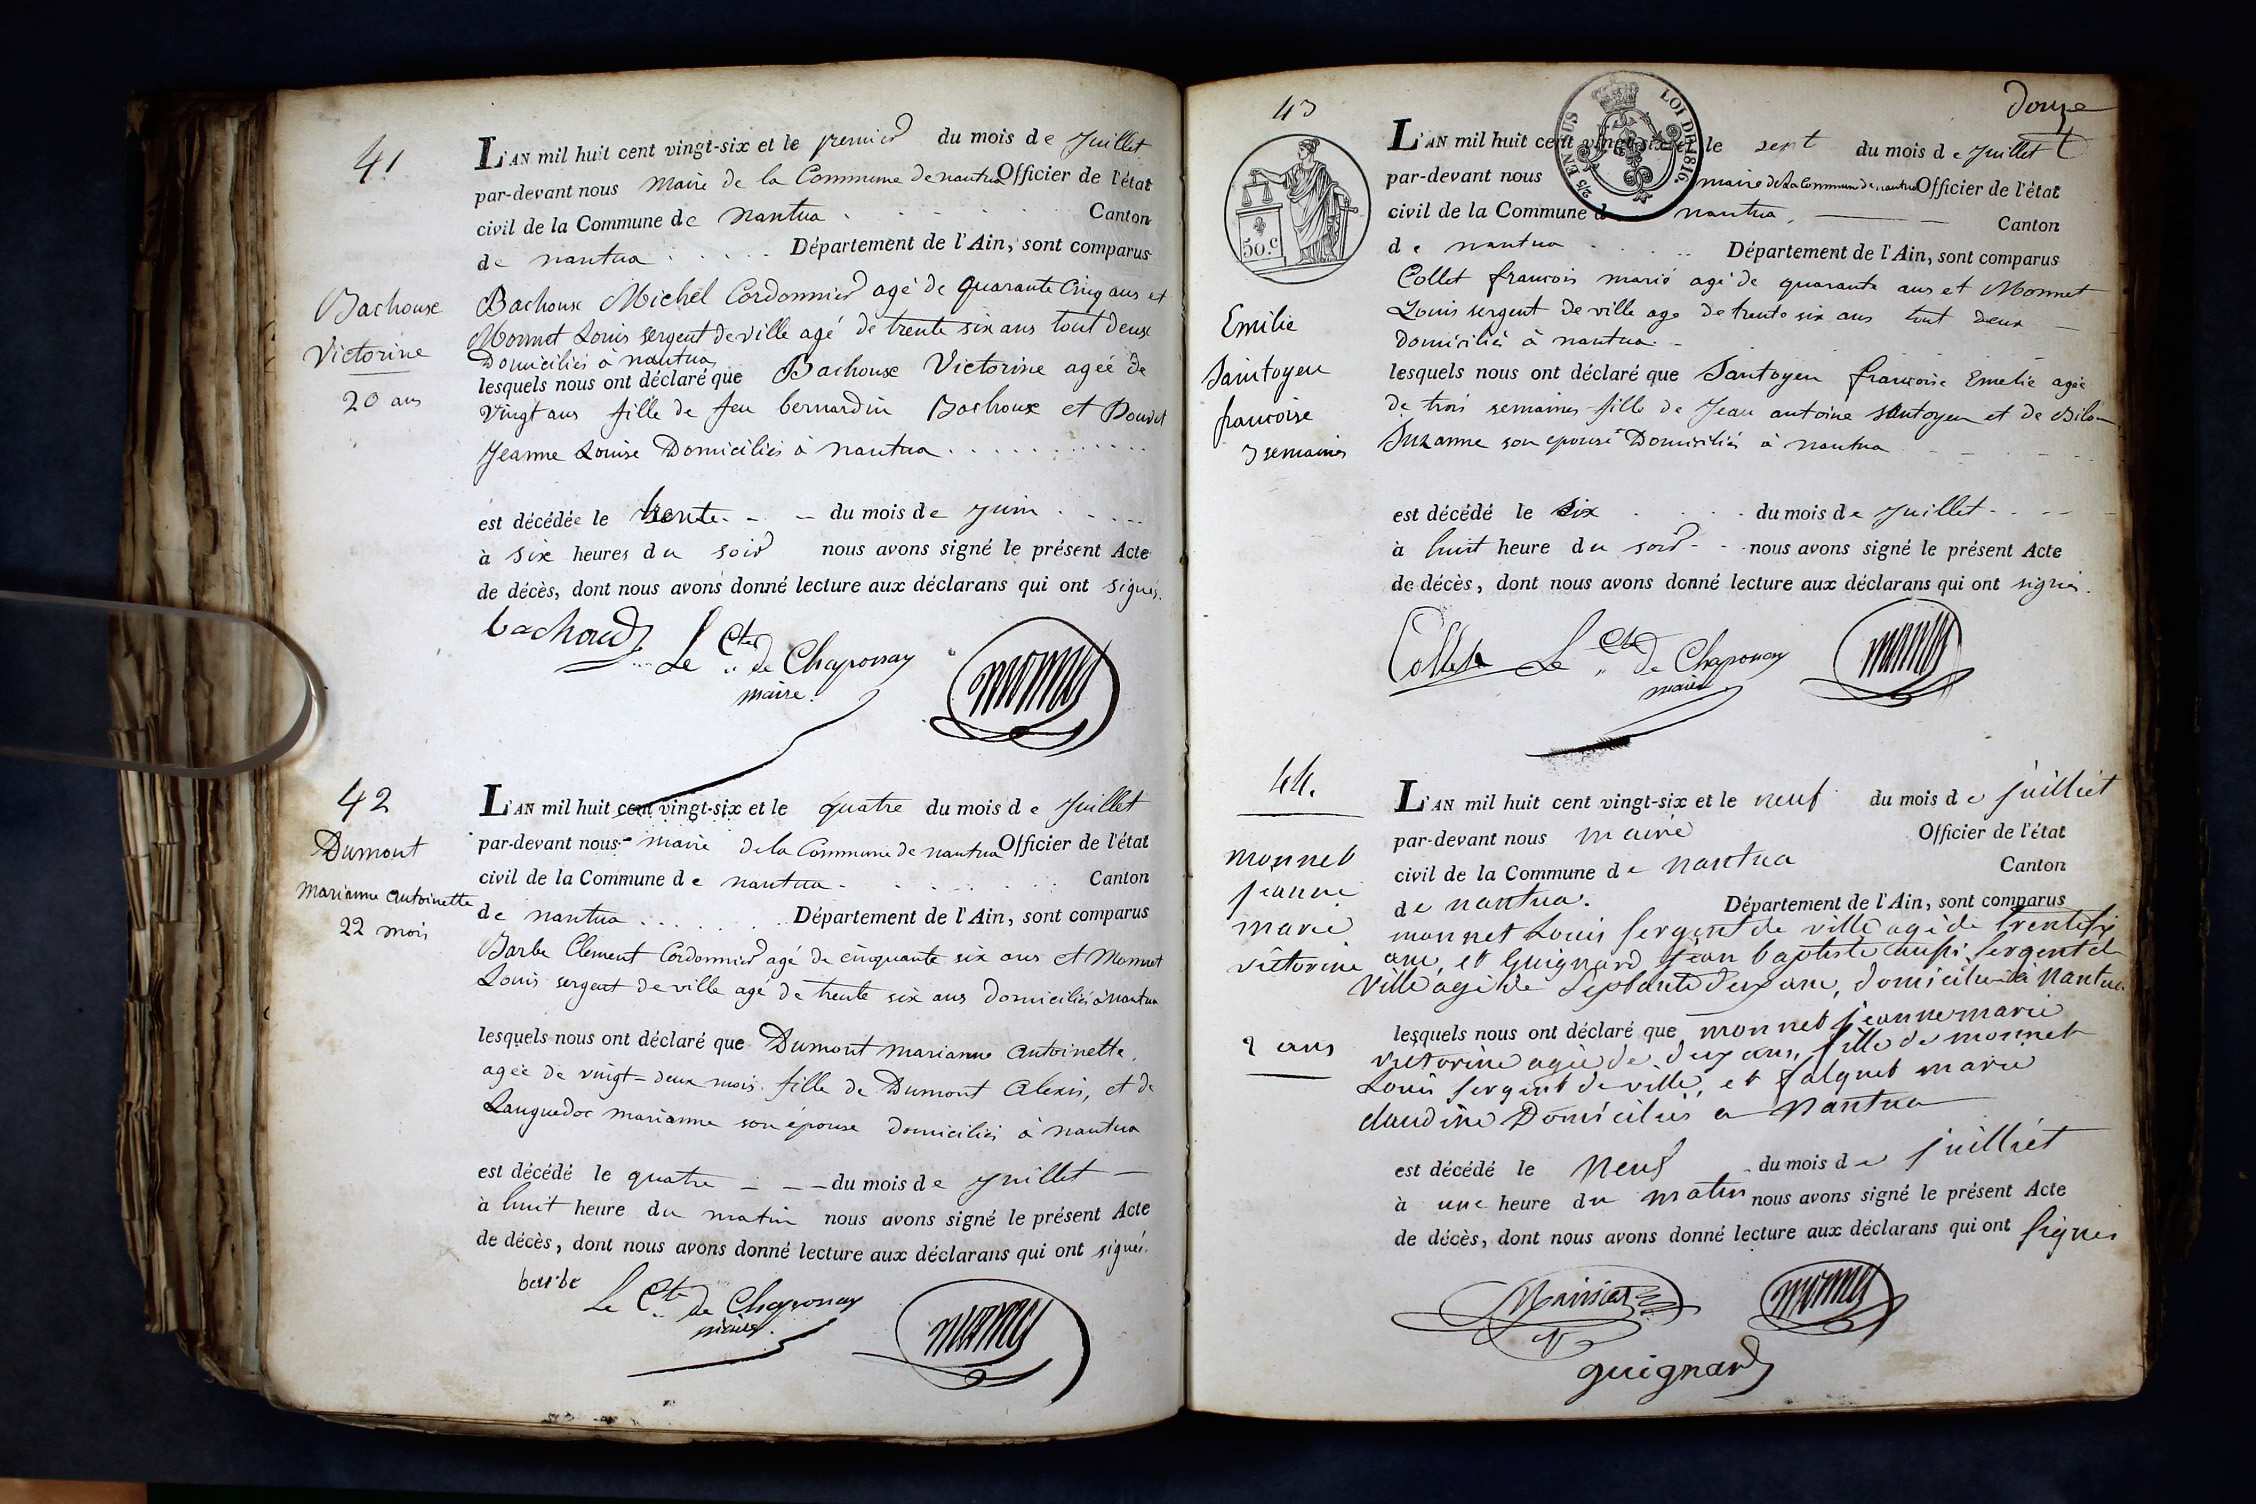 41
L'AN mil huit cent vingt-six et le premier du mois de Juillet
par-devant nous Maire de la Commune de nantua Officier de l'état
civil de la Commune de Nantua Canton
de nantua Département de l'Ain, sont comparus
Bachoux
Victorine
20 ans
Bachoux Michel Cordonnier agé de quarante Cinq ans et
Monnet Louis sergent de ville agé de trente six ans tout deux
Domiciliés à nantua
lesquels nous ont déclaré que Bachoux Victorine agée de
Vingt ans fille de feu bernardin Bachoux et
Jeanne Louise Domiciliés à Nantua
est décédée le trente du mois de Juin
à six heures du soir nous avons signé le présent Acte
de décès, dont nous avons donné lecture aux déclarans qui ont signés.
bachoud Le Cte de Chaponay monnet
maire.
42
Dumont
Marianne Antoinette
22 mois
L'AN mil huit cent vingt-six et le quatre du mois de Juillet
par-devant nous maire de la Commune de nantua Officier de l'état
civil de la Commune de nantua Canton
de nantua Département de l'Ain, sont comparus
Barbe Clement Cordonnier agé de cinquante six ans et Monnet
Louis sergent de ville agé de trente six ans domiciliés à nantua
lesquels nous ont déclaré que Dumont marianne Antoinette
agée de vingt-deux mois fille de Dumont Alexis, et de
Languedoc marianne son épouse domiciliés à nantua
est décédé le quatre du mois de Juillet
à huit heure du matin nous avons signé le présent Acte
de décès, dont nous avons donné lecture aux déclarans qui ont signés.
barbe Le Cte de Chaponay monnet
maire.
douze
43
LOI DE 1816
2/5 EN SUS
50.c
L'AN mil huit cent vingt-six et le sept du mois de Juillet
par-devant nous maire de La Commune de nantua Officier de l'état
civil de la Commune d nantua Canton
de nantua Département de l'Ain, sont comparus
Emilie
Saintoyen
francoise
3 semaines
Collet francois marié agé de quarante ans et Monnet
Louis sergent de ville age de trente six ans tout deux
domiciliés à nantua
lesquels nous ont déclaré que Santoyen francoise Emelie agée
de trois semaines fille de Jean antoine santoyen et de
Suzanne son epouse Domiciliés à nantua
est décédé le six du mois de Juillet
à huit heure du soir nous avons signé le présent Acte
de décès, dont nous avons donné lecture aux déclarans qui ont signés.
Collet Le Cte de Chaponay monnet
maire
44.
monnet
jeanne
marie
victorine
2 ans
L'AN mil huit cent vingt-six et le neuf du mois de juilliet
par-devant nous maire Officier de l'état
civil de la Commune de nantua Canton
de nantua. Département de l'Ain, sont comparus
monnet Louis sergent de ville agé de trente six
ans, et Guignard jean baptiste aussi sergent de
ville agé de septante deux ans, domiciliés à Nantua
lesquels nous ont déclaré que monnet jeanne marie
victorine agée de deux ans, fille de monnet
Louis sergent de ville, et falquet marie
claudine Domiciliés a Nantua
est décédé le Neuf du mois de juilliet
à une heure du matin nous avons signé le présent Acte
de décès, dont nous avons donné lecture aux déclarans qui ont signés
monnet
guignard